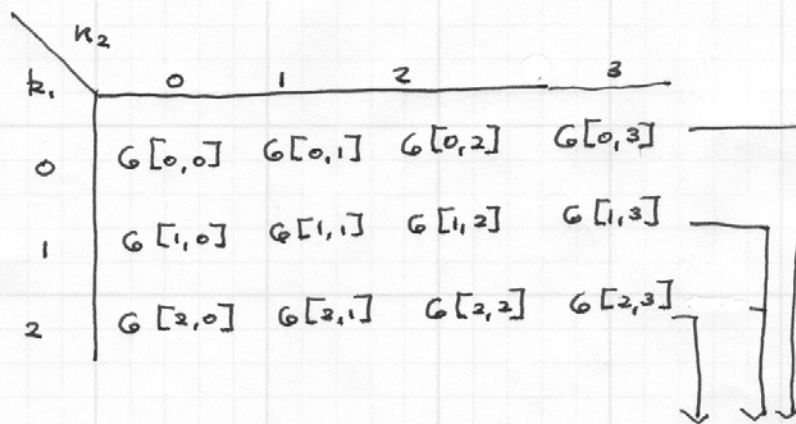 n₂
k₁ 0 1 2 3
0 G[0,0] G[0,1] G[0,2] G[0,3]
1 G[1,0] G[1,1] G[1,2] G[1,3]
2 G[2,0] G[2,1] G[2,2] G[2,3]